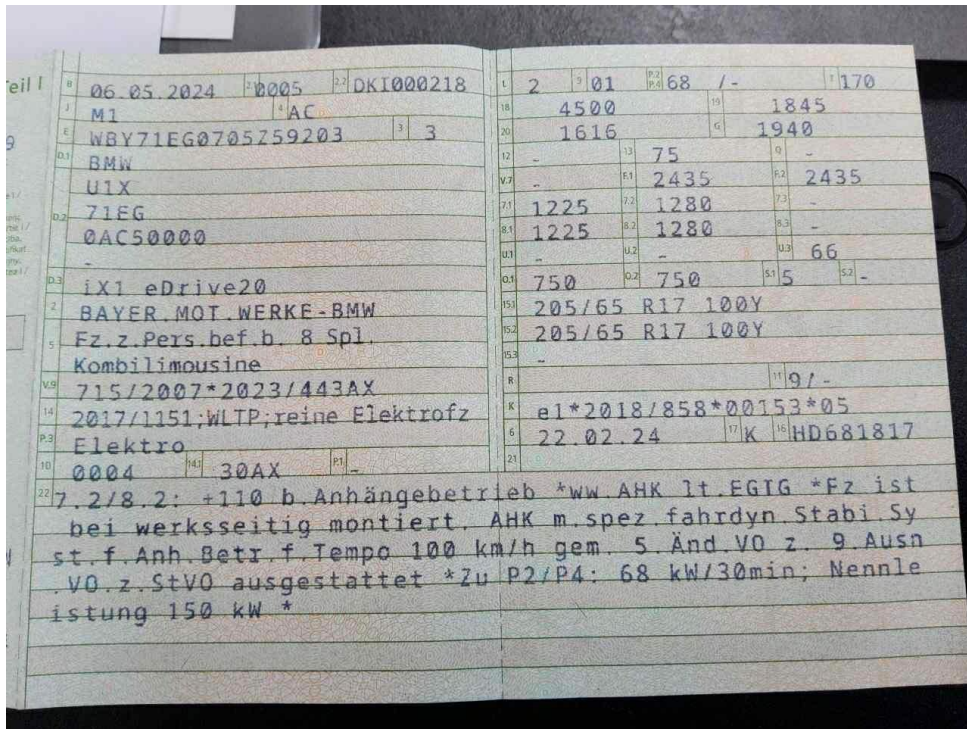 Teil I
B 06.05.2024 2.1 0005 2.2 DKI000218
J M1 4 AC
E WBY71EG0705Z59203 3 3
D.1 BMW
U1X
D.2 71EG
0AC50000
-
D.3 iX1 eDrive20
2 BAYER.MOT.WERKE-BMW
5 Fz.z.Pers.bef.b. 8 Spl.
Kombilimousine
V.9 715/2007*2023/443AX
14 2017/1151;WLTP;reine Elektrofz
P.3 Elektro
10 0004 14.1 30AX P.1 -
L 2 9 01 P.2 P.4 68 /- T 170
18 4500 19 1845
20 1616 G 1940
12 - 13 75 Q -
V.7 - F.1 2435 F.2 2435
7.1 1225 7.2 1280 7.3 -
8.1 1225 8.2 1280 8.3 -
U.1 - U.2 - U.3 66
O.1 750 O.2 750 S.1 5 S.2 -
15.1 205/65 R17 100Y
15.2 205/65 R17 100Y
15.3 -
R 11 9/-
K e1*2018/858*00153*05
6 22.02.24 17 K 16 HD681817
21
22 7.2/8.2: +110 b.Anhängebetrieb *ww.AHK lt.EGTG *Fz ist
bei werksseitig montiert. AHK m.spez.fahrdyn.Stabi.Sy
st.f.Anh.Betr.f.Tempo 100 km/h gem. 5.Änd.VO z. 9.Ausn
.VO.z.StVO ausgestattet *Zu P2/P4: 68 kW/30min; Nennle
istung 150 kW *